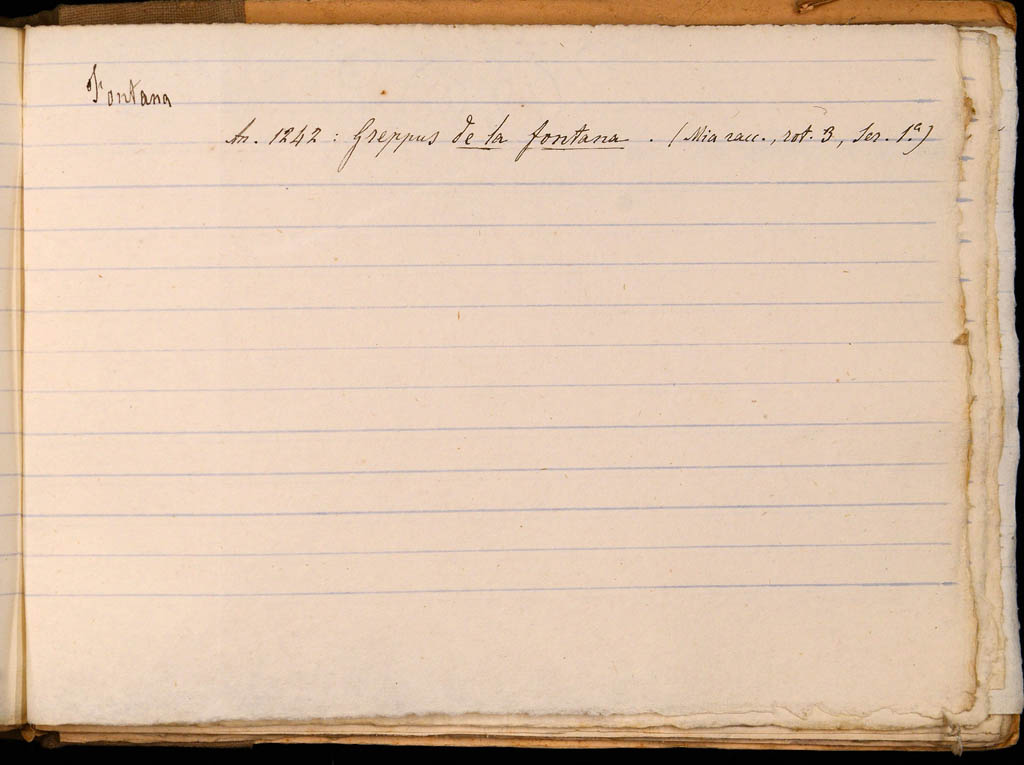 Fontana
An. 1242 : Greppus de la fontana . (Mia racc., rot. 3, Ser. 1.ª)